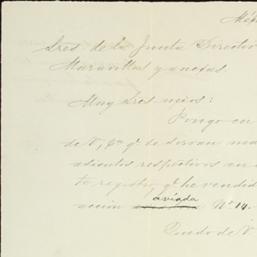 Méx
Sres de la Junta Directi
Maravillas y anexas.
Muy Sres mios:
Pongo en
de V, qe se sirvan ma
asientos respectivos en
to registro, qe he vendid
acción aviada Nº 14.
Quedo de V